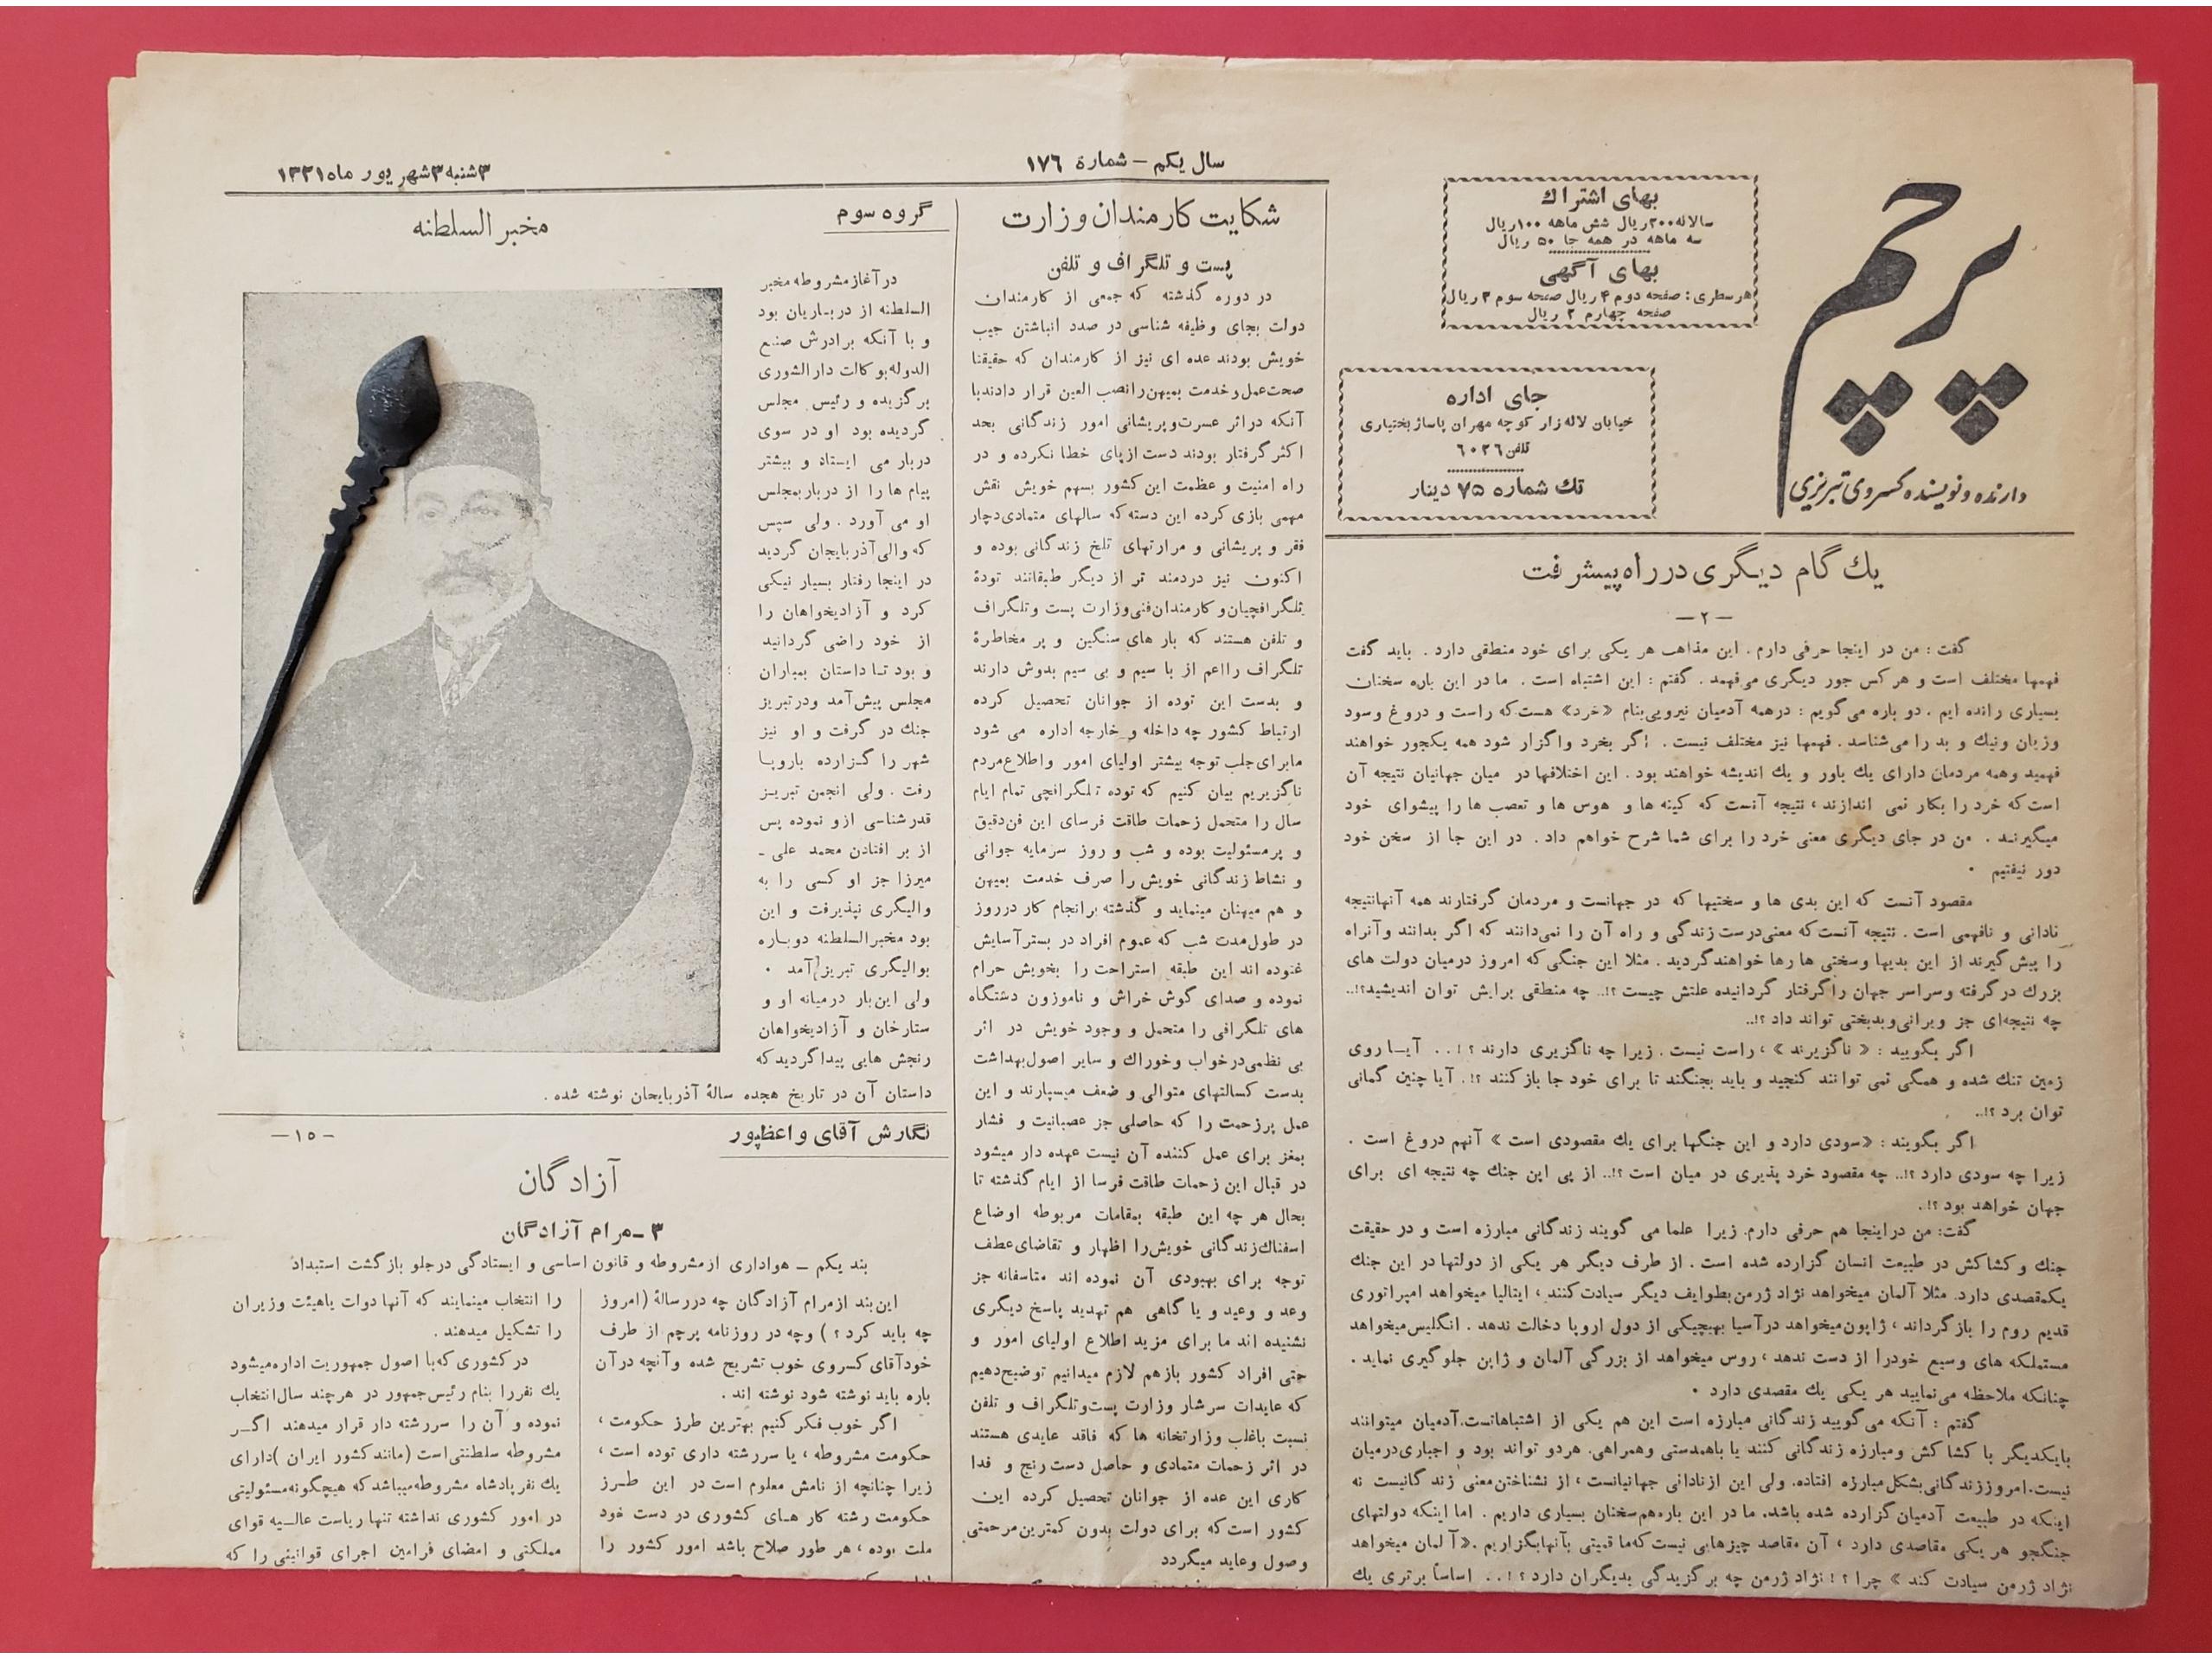 ۳شنبه ۳ شهریور ماه ۱۳۲۱
سال یکم – شماره ۱۷۶
پرچم
دارنده و نویسنده کسروی تبریزی
بهای اشتراك
سالانه ۲۰۰ ریال شش ماهه ۱۰۰ ریال
سه ماهه در همه جا ۵۰ ریال
بهای آگهی
هر سطری : صفحه دوم ۴ ریال صفحه سوم ۳ ریال
صفحه چهارم ۲ ریال
جای اداره
خیابان لاله زار کوچه مهران پاساژ بختیاری
تلفن ۶۰۲۶
تك شماره ۷۵ دینار
یك گام دیگری در راه پیشرفت
– ۲ –
گفت : من در اینجا حرفی دارم . این مذاهب هر یکی برای خود منطقی دارد . باید گفت
فهمها مختلف است و هر کس جور دیگری می‌فهمد . گفتم : این اشتباه است . ما در این باره سخنان
بسیاری رانده ایم . دو باره می‌گویم : در همه آدمیان نیرویی بنام «خرد» هست که راست و دروغ و سود
و زیان و نیك و بد را می‌شناسد . فهمها نیز مختلف نیست . اگر بخرد واگزار شود همه یکجور خواهند
فهمید و همه مردمان دارای یك باور و یك اندیشه خواهند بود . این اختلافها در میان جهانیان نتیجه آن
است که خرد را بکار نمی اندازند ، نتیجه آنست که کینه ها و هوس ها و تعصب ها را پیشوای خود
میگیرند . من در جای دیگری معنی خرد را برای شما شرح خواهم داد . در این جا از سخن خود
دور نیفتیم .
مقصود آنست که این بدی ها و سختیها که در جهانست و مردمان گرفتارند همه آنها نتیجه
نادانی و نافهمی است . نتیجه آنست که معنی درست زندگی و راه آن را نمی‌دانند که اگر بدانند و آنراه
را پیش گیرند از این بدیها و سختی ها رها خواهند گردید . مثلا این جنگی که امروز در میان دولت های
بزرك در گرفته و سراسر جهان را گرفتار گردانیده علتش چیست ؟!.. چه منطقی برایش توان اندیشید؟!..
چه نتیجه‌ای جز ویرانی و بدبختی تواند داد ؟!..
اگر بگویید : « ناگزیرند » ، راست نیست . زیرا چه ناگزیری دارند ؟!.. آیا روی
زمین تنك شده و همگی نمی توانند گنجید و باید بجنگند تا برای خود جا باز کنند ؟!. آیا چنین گمانی
توان برد ؟!..
اگر بگویند : «سودی دارد و این جنگها برای یك مقصودی است » آنهم دروغ است .
زیرا چه سودی دارد ؟!.. چه مقصود خرد پذیری در میان است ؟!.. از پی این جنك چه نتیجه ای برای
جهان خواهد بود ؟!.
گفت: من در اینجا هم حرفی دارم. زیرا علما می گویند زندگانی مبارزه است و در حقیقت
جنك و کشاکش در طبیعت انسان گزارده شده است . از طرف دیگر هر یکی از دولتها در این جنك
یکمقصدی دارد. مثلا آلمان میخواهد نژاد ژرمن بطوایف دیگر سیادت کنند ، ایتالیا میخواهد امپراتوری
قدیم روم را باز گرداند ، ژاپون میخواهد در آسیا بهیچیکی از دول اروپا دخالت ندهد . انگلیس میخواهد
مستملکه های وسیع خودرا از دست ندهد ، روس میخواهد از بزرگی آلمان و ژاپن جلوگیری نماید .
چنانکه ملاحظه می‌نمایید هر یکی یك مقصدی دارد .
گفتم : آنکه می گویید زندگانی مبارزه است این هم یکی از اشتباهاتست. آدمیان میتوانند
بایکدیگر با کشاکش و مبارزه زندگانی کنند یا باهمدستی و همراهی. هردو تواند بود و اجباری در میان
نیست. امروز زندگانی بشکل مبارزه افتاده. ولی این از نادانی جهانیانست ، از نشناختن معنی زندگانیست نه
اینکه در طبیعت آدمیان گزارده شده باشد. ما در این باره هم سخنان بسیاری داریم . اما اینکه دولتهای
جنگجو هر یکی مقاصدی دارد ، آن مقاصد چیزهایی نیست که ما قیمتی بآنها بگزاریم . «آلمان میخواهد
نژاد ژرمن سیادت کند » چرا ؟! نژاد ژرمن چه برگزیدگی بدیگران دارد ؟!.. اساساً برتری یك
شکایت کارمندان وزارت
پست و تلگراف و تلفن
در دوره گذشته که جمعی از کارمندان
دولت بجای وظیفه شناسی در صدد انباشتن جیب
خویش بودند عده ای نیز از کارمندان که حقیقتا
صحت عمل و خدمت بمیهن را نصب العین قرار دادند با
آنکه در اثر عسرت و پریشانی امور زندگانی بحد
اکثر گرفتار بودند دست از پای خطا نکرده و در
راه امنیت و عظمت این کشور بسهم خویش نقش
مهمی بازی کرده این دسته که سالهای متمادی دچار
فقر و پریشانی و مرارتهای تلخ زندگانی بوده و
اکنون نیز دردمند تر از دیگر طبقاتند تودۀ
تلگرافچیان و کارمندان فنی وزارت پست و تلگراف
و تلفن هستند که بار های سنگین و پر مخاطرۀ
تلگراف را اعم از با سیم و بی سیم بدوش دارند
و بدست این توده از جوانان تحصیل کرده
ارتباط کشور چه داخله و خارجه اداره می شود
ما برای جلب توجه بیشتر اولیای امور و اطلاع مردم
ناگزیریم بیان کنیم که توده تلگرافچی تمام ایام
سال را متحمل زحمات طاقت فرسای این فن دقیق
و پرمسئولیت بوده و شب و روز سرمایه جوانی
و نشاط زندگانی خویش را صرف خدمت بمیهن
و هم میهنان مینماید و گذشته بر انجام کار در روز
در طول مدت شب که عموم افراد در بستر آسایش
غنوده اند این طبقه استراحت را بخویش حرام
نموده و صدای گوش خراش و ناموزون دستگاه
های تلگرافی را متحمل و وجود خویش در اثر
بی نظمی در خواب و خوراك و سایر اصول بهداشت
بدست کسالتهای متوالی و ضعف میسپارند و این
عمل پرزحمت را که حاصلی جز عصبانیت و فشار
بمغز برای عمل کننده آن نیست عهده دار میشود
در قبال این زحمات طاقت فرسا از ایام گذشته تا
بحال هر چه این طبقه بمقامات مربوطه اوضاع
اسفناك زندگانی خویش را اظهار و تقاضای عطف
توجه برای بهبودی آن نموده اند متاسفانه جز
وعد و وعید و یا گاهی هم تهدید پاسخ دیگری
نشنیده اند ما برای مزید اطلاع اولیای امور و
حتی افراد کشور باز هم لازم میدانیم توضیح دهیم
که عایدات سرشار وزارت پست و تلگراف و تلفن
نسبت باغلب وزارتخانه ها که فاقد عایدی هستند
در اثر زحمات متمادی و حاصل دست رنج و فدا
کاری این عده از جوانان تحصیل کرده این
کشور است که برای دولت بدون کمترین مرحمتی
وصول و عاید میگردد
گروه سوم
مخبر السلطنه
در آغاز مشروطه مخبر
السلطنه از درباریان بود
و با آنکه برادرش صنیع
الدوله بوکالت دارالشوری
برگزیده و رئیس مجلس
گردیده بود او در سوی
دربار می ایستاد و بیشتر
پیام ها را از دربار بمجلس
او می آورد . ولی سپس
که والی آذربایجان گردید
در اینجا رفتار بسیار نیکی
کرد و آزادیخواهان را
از خود راضی گردانید
و بود تا داستان بمباران
مجلس پیش آمد و در تبریز
جنك در گرفت و او نیز
شهر را گزارده باروپا
رفت . ولی انجمن تبریز
قدرشناسی ازو نموده پس
از بر افتادن محمد علی ـ
میرزا جز او کسی را به
والیگری نپذیرفت و این
بود مخبرالسلطنه دوباره
بوالیگری تبریز آمد .
ولی این بار در میانه او و
ستارخان و آزادیخواهان
رنجش هایی پیدا گردید که
داستان آن در تاریخ هجده سالۀ آذربایجان نوشته شده .
نگارش آقای واعظپور
– ۱۵ –
آزادگان
۳ ـ مرام آزادگان
بند یکم ـ هواداری از مشروطه و قانون اساسی و ایستادگی در جلو بازگشت استبداد
این بند از مرام آزادگان چه در رسالۀ (امروز
چه باید کرد ؟ ) و چه در روزنامه پرچم از طرف
خود آقای کسروی خوب تشریح شده و آنچه در آن
باره باید نوشته شود نوشته اند .
اگر خوب فکر کنیم بهترین طرز حکومت ،
حکومت مشروطه ، یا سررشته داری توده است ،
زیرا چنانچه از نامش معلوم است در این طرز
حکومت رشته کار های کشوری در دست خود
ملت بوده ، هر طور صلاح باشد امور کشور را
را انتخاب مینمایند که آنها دولت یا هیئت وزیران
را تشکیل میدهند .
در کشوری که با اصول جمهوریت اداره میشود
یك نفر را بنام رئیس جمهور در هر چند سال انتخاب
نموده و آن را سررشته دار قرار میدهند اگر
مشروطه سلطنتی است (مانند کشور ایران ) دارای
یك نفر پادشاه مشروطه میباشد که هیچگونه مسئولیتی
در امور کشوری نداشته تنها ریاست عالیه قوای
مملکتی و امضای فرامین اجرای قوانینی را که